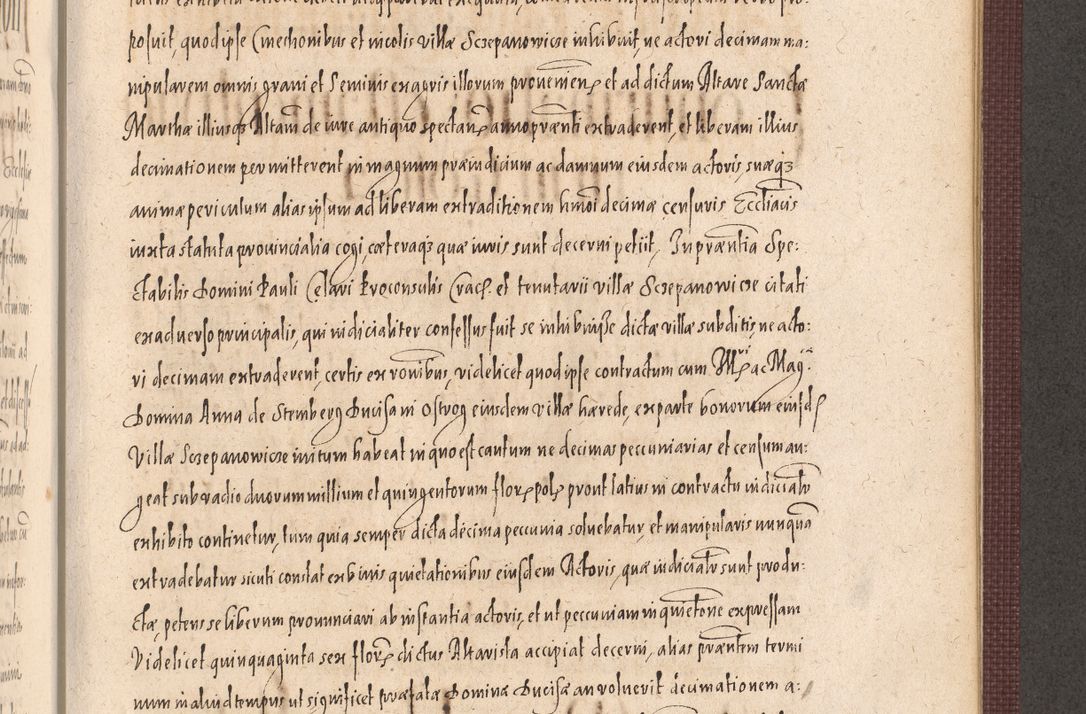 posuit, quod ipse Cmethonibus et incolis villæ Sczepanowicze inhibuit, ne actori decimam ma:
nipularem omnis grani et Seminis ex agris illorum provenien̄ et ad dictum Altare Sanctæ
Marthæ illiusq3 Altam̄ de iure antiquo spectan̄ anno præn̄ti extraderent, et liberam illius
decimationem permitterent in magnum præiudicium ac damnum eiusdem actoris, suæq3
animæ periculum alias ipsum ad liberam extraditionem hm̄oi decimæ censuris Eccl̄iacis
iuxta statuta provincialia cogi, cæteraq3 quæ iuris sunt decerni petiit, In præn̄tia Spe:
ctabilis Domini Pauli Celari Proconsulis Crac̄ et tenutarii villæ Sczepanowicze citati
ex adverso principalis, qui iudicialiter confessus fuit se inhibuisse dictæ villæ subditis, ne acto:
ri decimam extraderent, certis ex rōnibus, videlicet quod ipse contractum cum Ill̄ri ac Mag.ca
Domina Anna de Sternberg Ducissa in Ostrog eiusdem villæ hærede, ex parte bonorum eiusd̄
Villæ Sczepanowicze initum habeat in quo est cautum ne decimas peccuniarias et censum au:
geat sub vadio duorum millium et quingentorum flor̄ pol̄ prout latius in contractu iudicial̄r
exhibito continetur, tum quia semper dicta decima peccunia solvebatur, et manipularis nunquā
extradebatur sicuti constat ex binis quietationibus eiusdem Actoris, quæ iudicial̄r sunt produ:
ctæ, petens se liberum pronunciari ab instantia actoris, et ut peccuniam in quietōne expressam
Videlicet quinquaginta sex flor̄ dictus Altarista accipiat decerni, alias præn̄tem termi
num in aliud tempus ut significet præfatæ Dominæ Ducissæ an voluerit decimationem a: